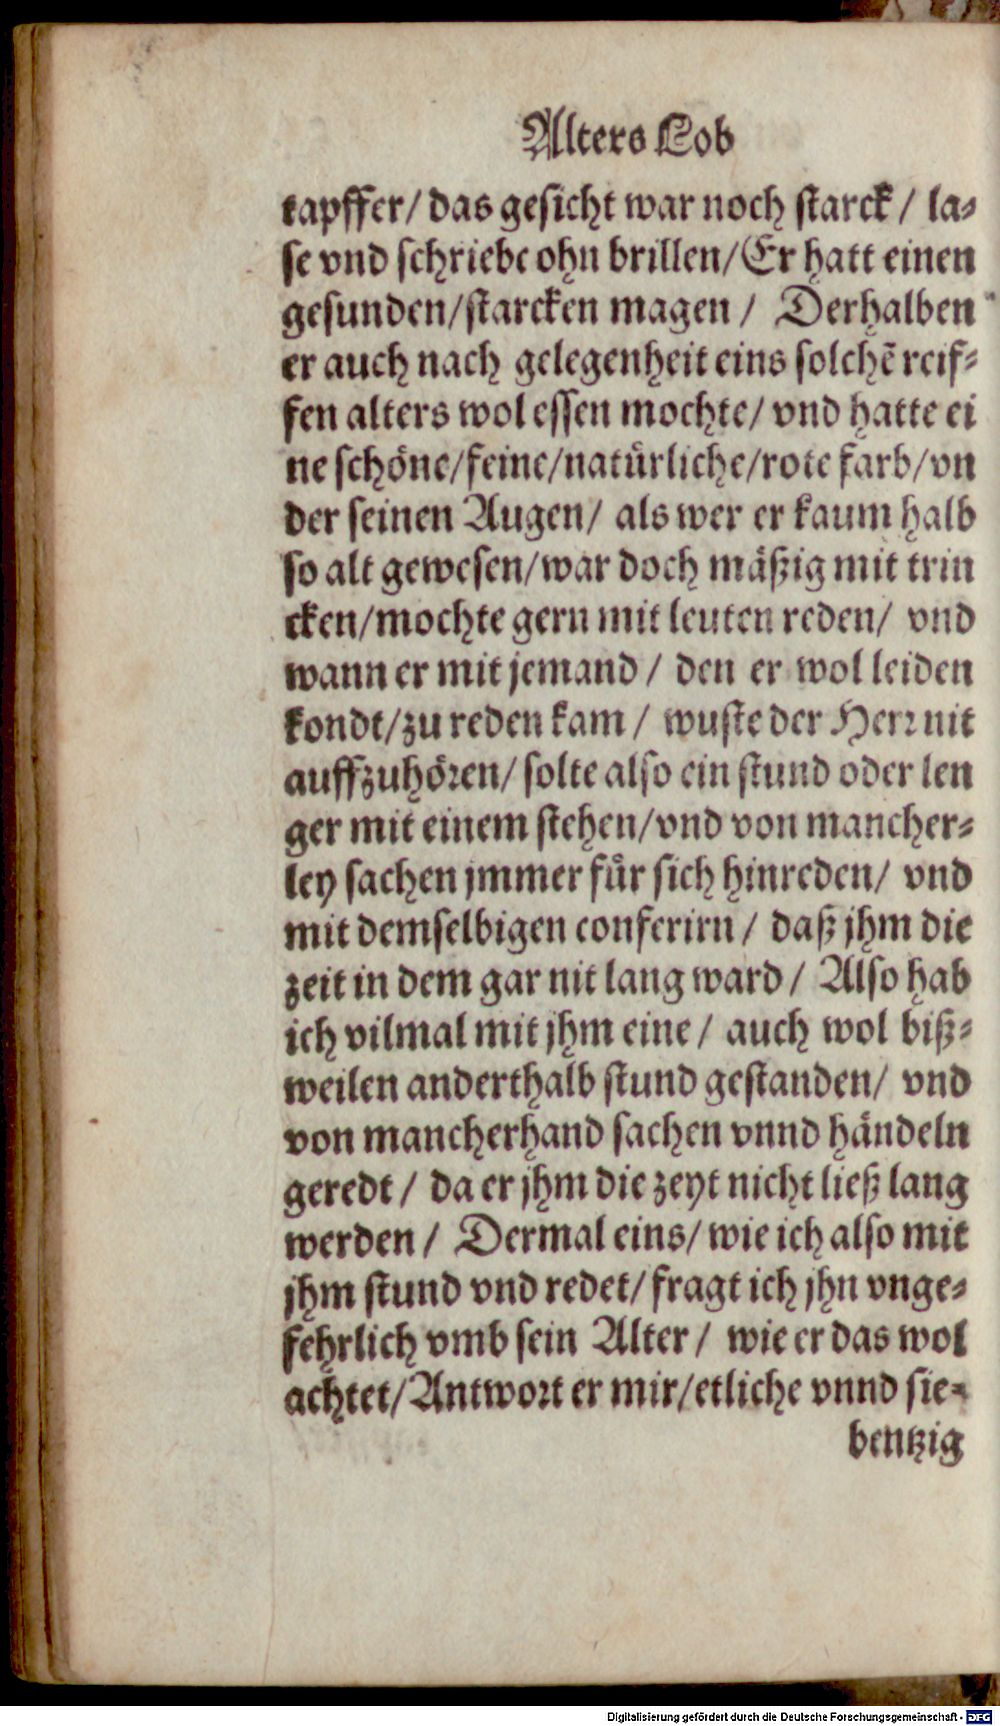 Alters Lob
tapffer/ das gesicht war noch starck / la⸗
se vnd schriebe ohn brillen/ Er hatt einen
gesunden/starcken magen / Derhalben
er auch nach gelegenheit eins solchẽ reif⸗
fen alters wol essen mochte/ vnd hatte ei
ne schöne/feine/natürliche/rote farb/vn
der seinen Augen/ als wer er kaum halb
so alt gewesen/war doch mäßig mit trin
cken/mochte gern mit leuten reden/ vnd
wann er mit jemand / den er wol leiden
kondt/zu reden kam / wuste der Herr nit
auffzuhören/ solte also ein stund oder len
ger mit einem stehen/vnd von mancher⸗
ley sachen jmmer für sich hinreden/ vnd
mit demselbigen conferirn / daß jhm die
zeit in dem gar nit lang ward / Also hab
ich vilmal mit jhm eine / auch wol biß⸗
weilen anderthalb stund gestanden/ vnd
von mancherhand sachen vnnd händeln
geredt / da er jhm die zeyt nicht ließ lang
werden / Dermal eins/ wie ich also mit
jhm stund vnd redet/ fragt ich jhn vnge⸗
fehrlich vmb sein Alter / wie er das wol
achtet/ Antwort er mir/etliche vnnd sie⸗
bentzig
Digitalisierung gefördert durch die Deutsche Forschungsgemeinschaft - DFG